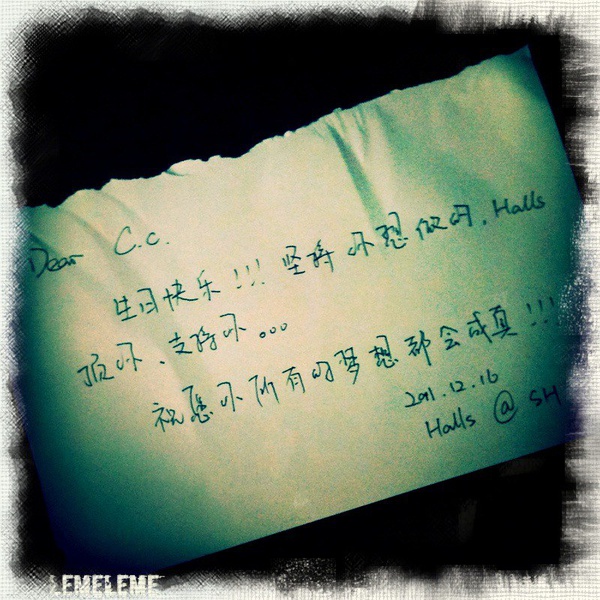 Dear C.C.
生日快乐!!! 坚持你想做的, Halls
顶你、支持你。。。
祝愿你所有的梦想都会成真!!!
2011.12.16
Halls @ SH
LEMELEME